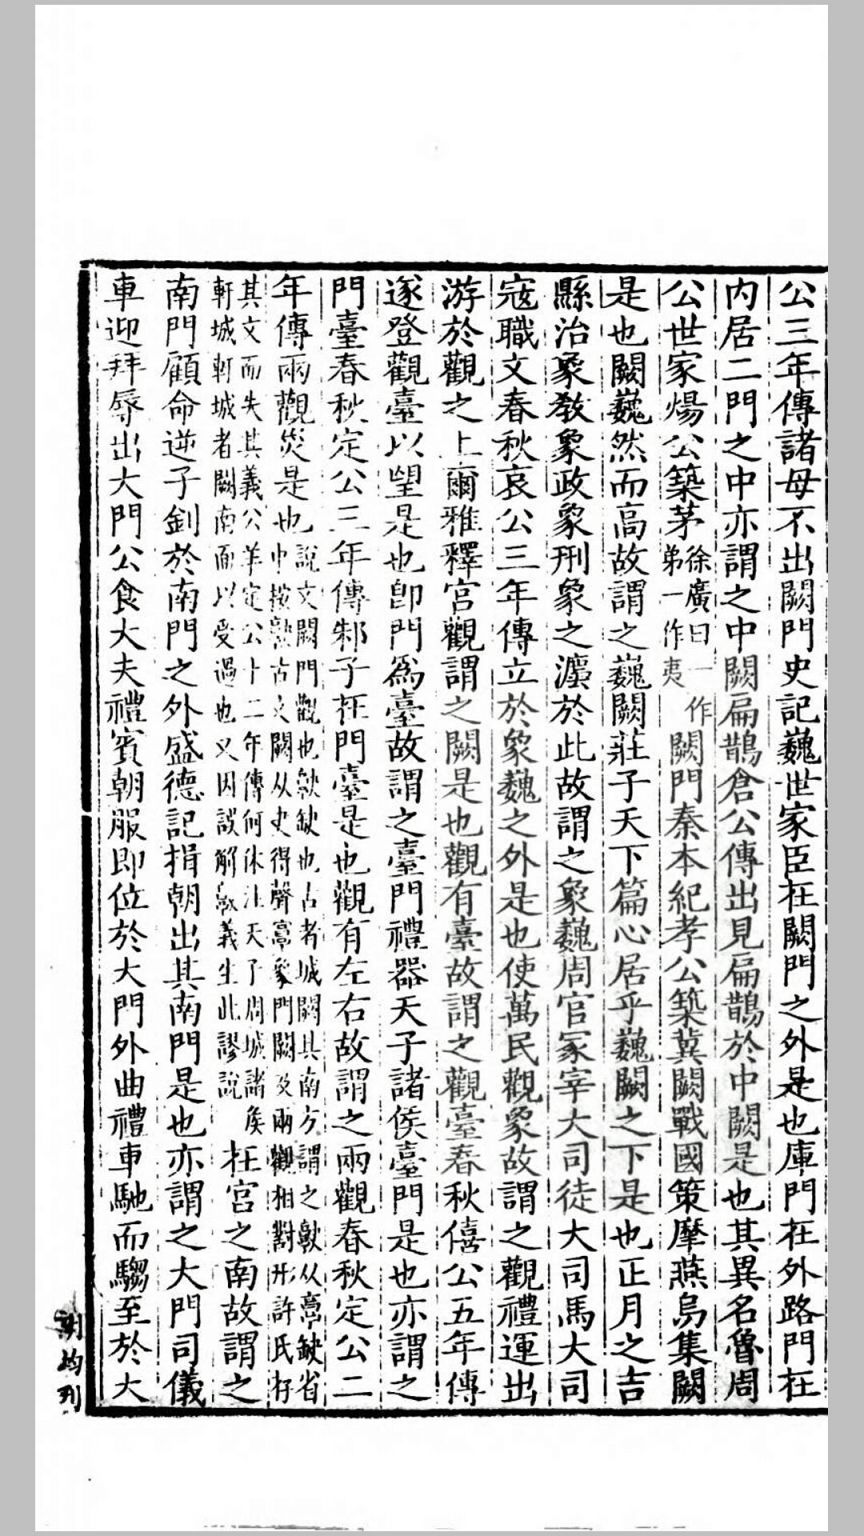 公三年傳諸母不出闕門史記巍世家臣在闕門之外是也庫門在外路門在
内居二門之中亦謂之中闕扁鵲倉公傳出見扁鵲於中闕是也其異名魯周
公世家煬公築茅徐廣曰一作
弟一作夷
闕門秦本紀孝公築冀闕戰國策摩燕烏集闕
是也闕巍然而高故謂之巍闕莊子天下篇心居乎巍闕之下是也正月之吉
縣治象敎象政象刑象之灋於此故謂之象巍周官冢宰大司徒大司馬大司
寇職文春秋哀公三年傳立於象巍之外是也使萬民觀象故謂之觀禮運出
游於觀之上爾雅釋宮觀謂之闕是也觀有臺故謂之觀臺春秋僖公五年傳
遂登觀臺以望是也卽門爲臺故謂之臺門禮器天子諸侯臺門是也亦謂之
門臺春秋定公三年傳邾子在門臺是也觀有左右故謂之兩觀春秋定公二
年傳兩觀災是也
說文闕門觀也𣥺缺也古者城闕其南方謂之𣥺从𩫏缺省
中按𣥺古文闕从史得聲𩫏象門闕及兩觀相對形許氏存
其文而失其義公羊定公十二年傳何休注天子周城諸侯
軒城軒城者闕南面以受過也又因誤解𣥺義生此謬說
在宮之南故謂之
南門顧命逆子釗於南門之外盛德記揖朝出其南門是也亦謂之大門司儀
車迎拜辱出大門公食大夫禮賓朝服即位於大門外曲禮車馳而騶至於大